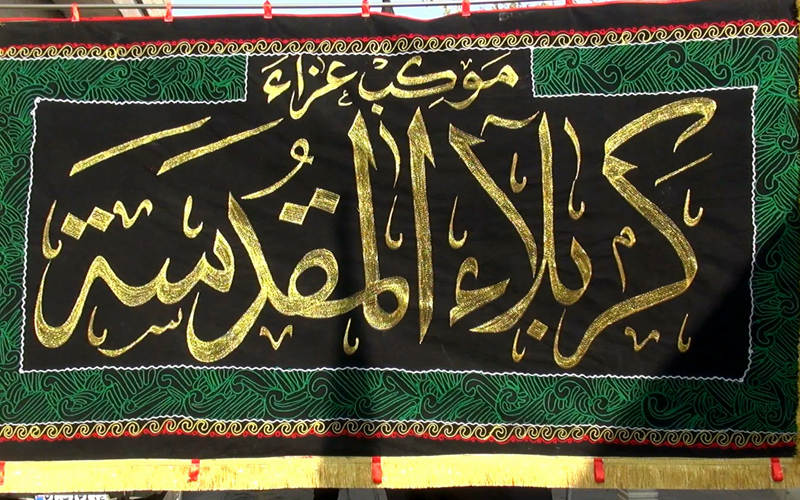 مَوكِبْ عَزاءَ
كَربَلاءِ المقُدسَةَ